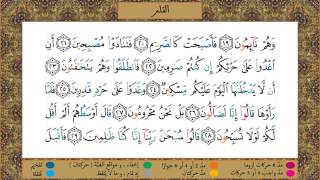 القلم
وَهُمْ نَآئِمُونَ ﴿١٩﴾ فَأَصْبَحَتْ كَٱلصَّرِيمِ ﴿٢٠﴾ فَتَنَادَوْا۟ مُصْبِحِينَ ﴿٢١﴾ أَنِ
ٱغْدُوا۟ عَلَىٰ حَرْثِكُمْ إِن كُنتُمْ صَٰرِمِينَ ﴿٢٢﴾ فَٱنطَلَقُوا۟ وَهُمْ يَتَخَٰفَتُونَ ﴿٢٣﴾ أَن
لَّا يَدْخُلَنَّهَا ٱلْيَوْمَ عَلَيْكُم مِّسْكِينٌ ﴿٢٤﴾ وَغَدَوْا۟ عَلَىٰ حَرْدٍ قَٰدِرِينَ ﴿٢٥﴾ فَلَمَّا
رَأَوْهَا قَالُوٓا۟ إِنَّا لَضَآلُّونَ ﴿٢٦﴾ بَلْ نَحْنُ مَحْرُومُونَ ﴿٢٧﴾ قَالَ أَوْسَطُهُمْ أَلَمْ أَقُل
لَّكُمْ لَوْلَا تُسَبِّحُونَ ﴿٢٨﴾ قَالُوا۟ سُبْحَٰنَ رَبِّنَآ إِنَّا كُنَّا ظَٰلِمِينَ ﴿٢٩﴾ فَأَقْبَلَ